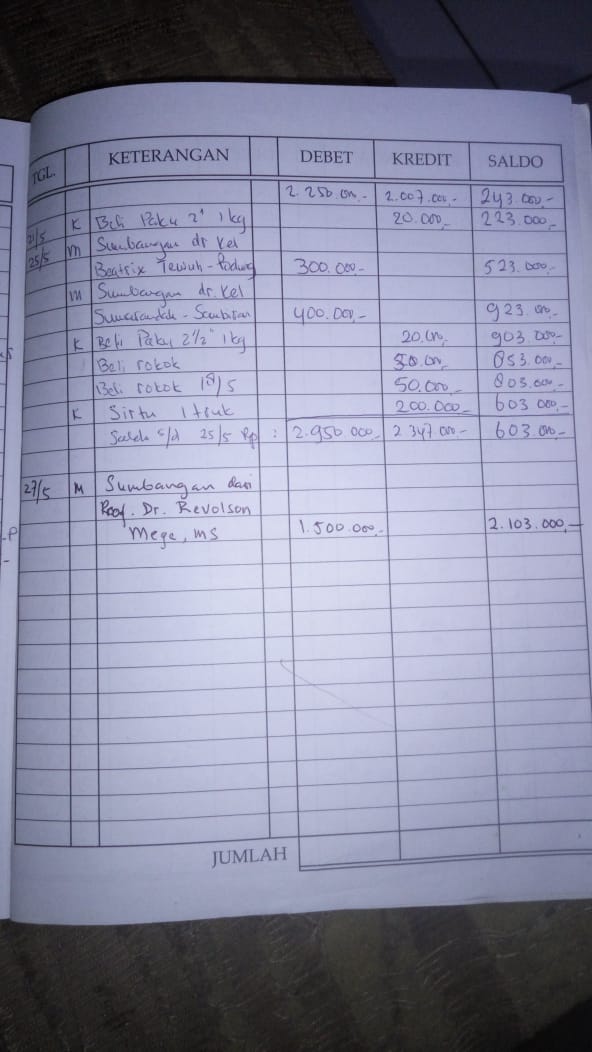 TGL. KETERANGAN DEBET KREDIT SALDO
2.250.000,- 2.007.000,- 243.000,-
21/5 K Beli Paku 2" 1 kg 20.000,- 223.000,-
25/5 M Sumbangan dr Kel
Beatrix Tewuh - 300.000,- 523.000,-
M Sumbangan dr. Kel
400.000,- 923.000,-
K Beli Paku 2 1/2" 1 kg 20.000,- 903.000,-
Beli rokok 50.000,- 853.000,-
Beli rokok 18/5 50.000,- 803.000,-
K Sirtu 1 truk 200.000,- 603.000,-
Saldo s/d 25/5 Rp : 2.950.000,- 2.347.000,- 603.000,-
27/5 M Sumbangan dari
Prof. Dr. Revolson
Mege, MS 1.500.000,- 2.103.000,-
JUMLAH